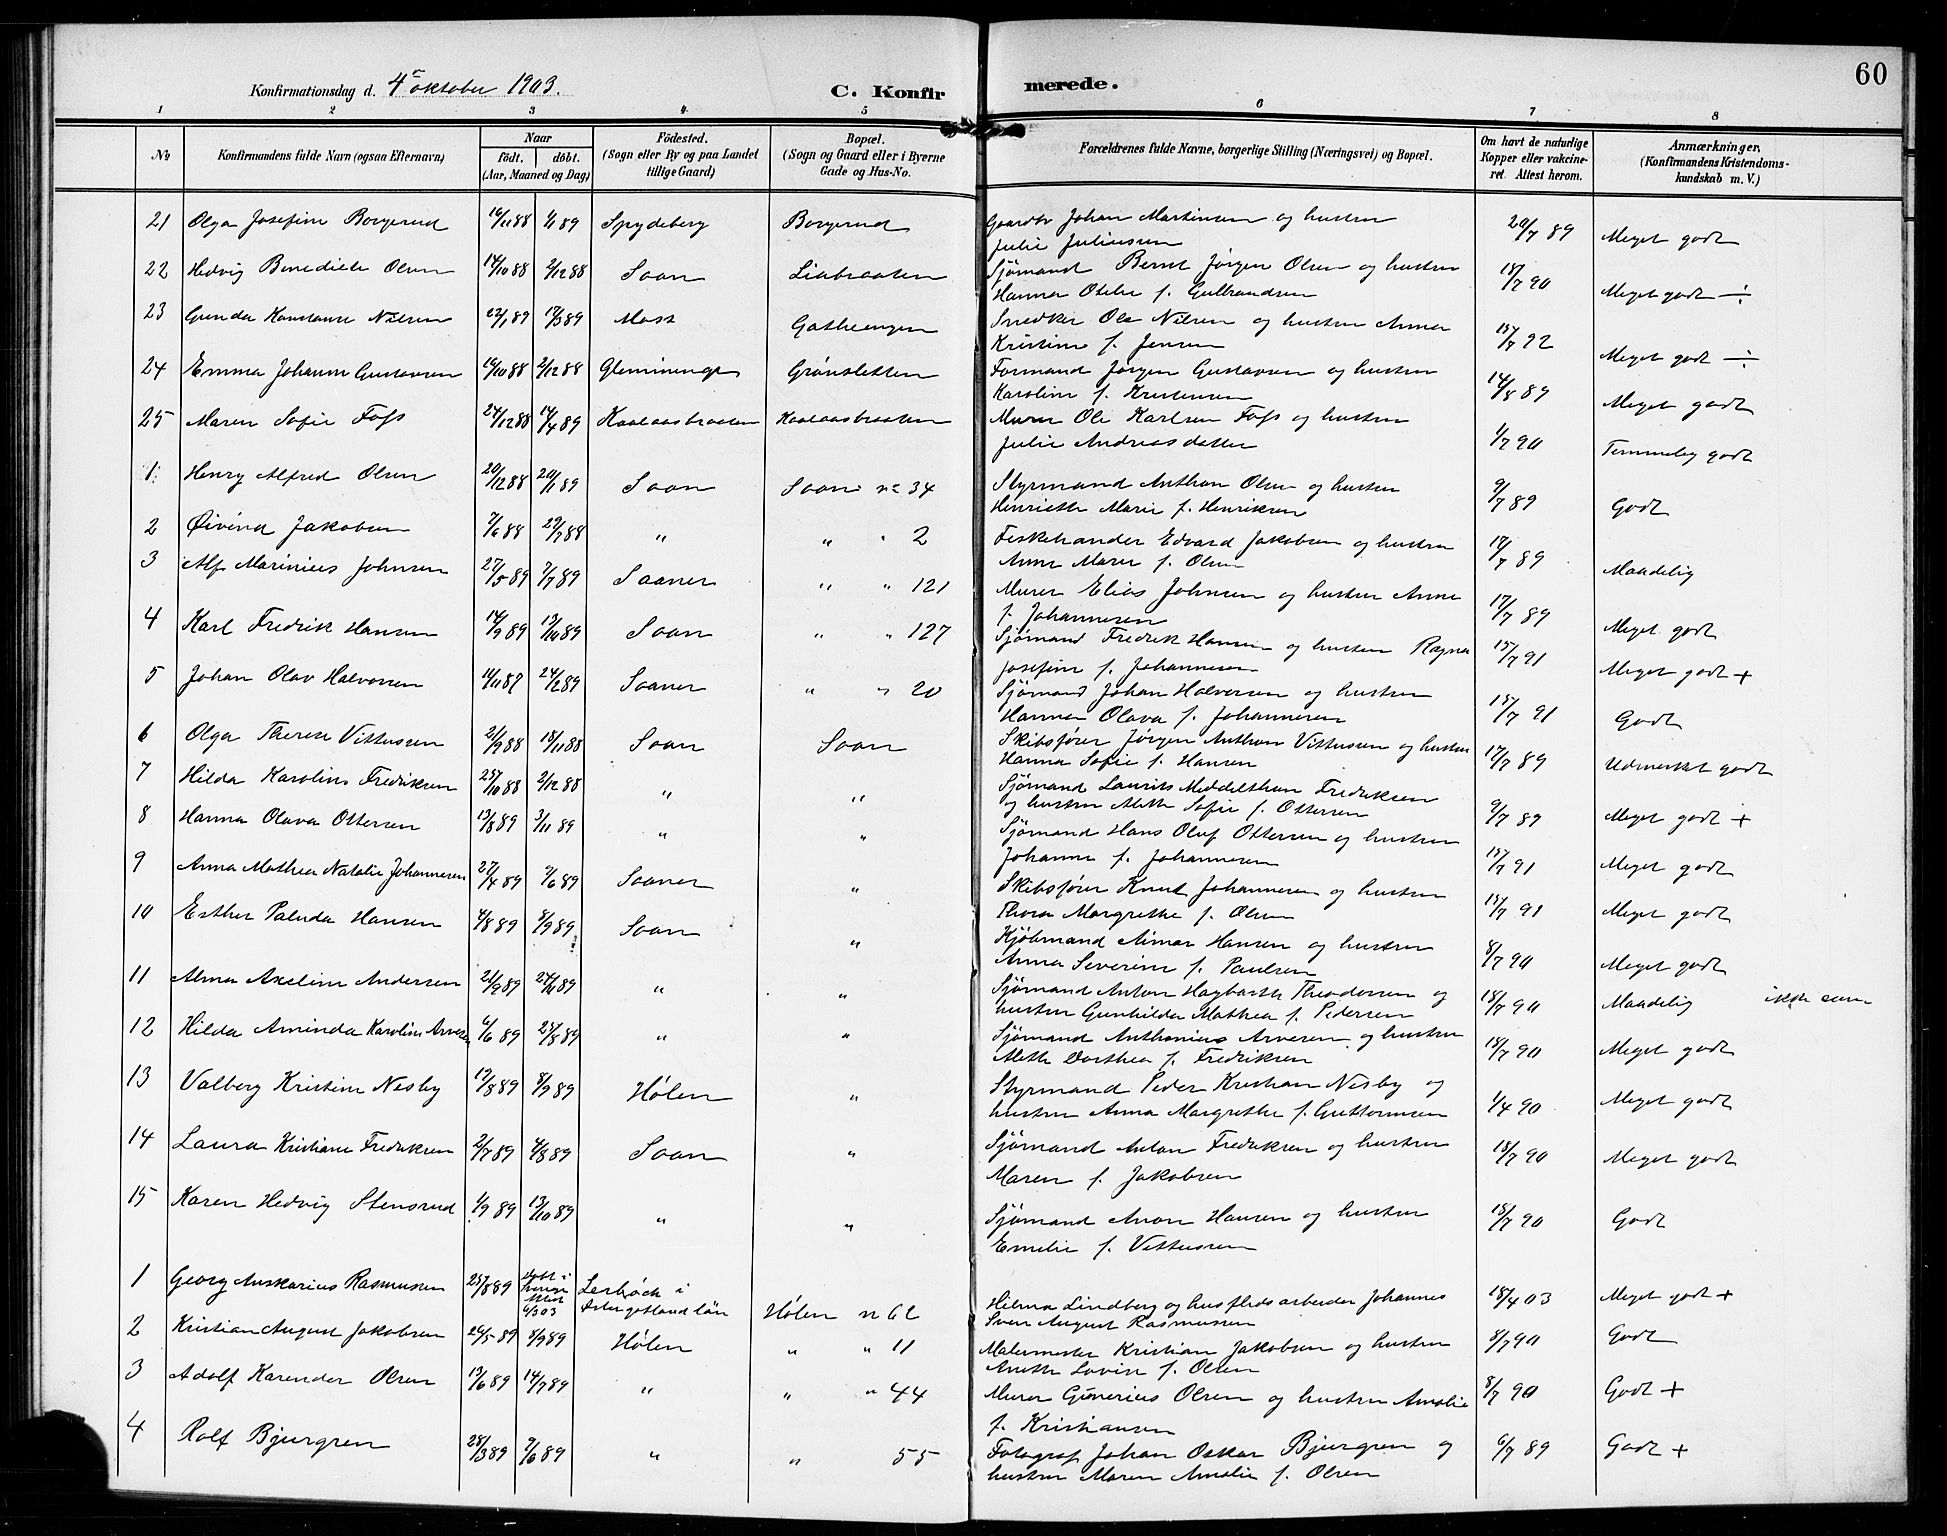 60
Konfirmationsdag d. 4de oktober 1903.
C. Konfirmerede.
1 2 3 4 5 6 7 8
No
Konfirmandens fulde Navn (ogsaa Efternavn)
Naar
født. døbt.
(Aar, Maaned og Dag)
Fødested.
(Sogn eller By og paa Landet
tillige Gaard)
Bopæl.
(Sogn og Gaard eller i Byerne
Gade og Hus-No.
Forældrenes fulde Navne, borgerlige Stilling (Næringsvei) og Bopæl.
Om havt de naturlige
Kopper eller vakcine-
ret. Attest herom.
Anmærkninger,
(Konfirmandens Kristendoms-
kundskab m. V.)
21 Olga Josefine Borgerud 16/11 88 1/1 89 Spydeberg Borgerud Gaardbr Johan Martinsen og hustru
Julie Juliusen 20/7 89 Meget godt
22 Hedvig Benedicte Olsen 14/10 88 2/12 88 Soon Liabraaten Sjømand Bernt Jørgen Olsen og hustru
Hanna Otelie f. Gulbrandsen 18/7 90 Meget godt ÷
23 Gunda Konstanse Nilsen 22/1 89 17/3 89 Moss Snedker Ole Nilsen og hustru Anna
Kristine f. Jensen 15/7 92 Meget godt ÷
24 Emma Johanne Gustavsen 16/10 88 2/12 88 Glemminge Grønsletten Formand Jørgen Gustavsen og hustru
Karoline f. Kristensen 14/8 89 Meget godt
25 Maren Sofie Foss 24/12 88 14/4 89 Kaalaasbraaten Kaalaasbraaten Murer Ole Karlsen Foss og hustru
Julie Andreasdatter 1/7 90 Temmelig godt
1 Henry Alfred Olsen 20/12 88 20/1 89 Soon Soon no 34 Styrmand Anthon Olsen og hustru
Henriette Marie f. Henriksen 9/7 89 Godt
2 Øivind Jakobsen 7/6 88 29/7 88 " " " 2 Fiskehandler Edvard Jakobsen og hustru
Anne Maren f. Olsen 17/7 89 Maadelig
3 Alf Marinius Johnsen 27/5 89 7/7 89 Saaner " " 121 Murer Elias Johnsen og hustru Anne
f. Johannesen 17/7 89 Meget godt
4 Karl Fredrik Hansen 14/9 89 13/10 89 Soon " " 127 Sjømand Fredrik Hansen og hustru Ragna
Josefine f. Johannesen 15/7 91 Meget godt +
5 Johan Olav Halvorsen 24/2 89 Saaner " " 20 Sjømand Johan Halvorsen og hustru
Hanna Olava f. Johannesen 15/7 91 Godt
6 Olga Therese Vittussen 21/9 88 18/11 88 Soon Soon Skibsfører Jørgen Anthon Vittussen og hustru
Hanna Sofie f. Hansen 17/7 89 Udmerket godt
7 Hilda Karoline Fredriksen 25/10 88 2/12 88 " " Sjømand Laurits Middelthun Fredriksen
og hustru Aleth Sofie f. Ottersen 9/7 89 Meget godt +
8 Hanna Olava Ottersen 13/8 89 3/11 89 " " Sjømand Hans Oluf Ottersen og hustru
Johanne f. Johannesen 15/7 91 Meget godt
9 Anna Mathea Natalie Johannesen 27/4 89 9/6 89 Saaner " Skibsfører Knut Johannesen og hustru
Thora Margrethe f. Olsen 15/7 91 Meget godt
10 Esther Palude Hansen 4/8 89 8/9 89 Soon " Kjøbmand Aimar Hansen og hustru
Anna Severine f. Paulsen 8/7 90 Meget godt
11 Alma Axeline Andersen 21/9 89 24/11 89 " " Sjømand Anton Hagbarth Theodorsen og
hustru Gunhilda Mathea f. Pedersen 18/7 90 Maadelig ikke
12 Hilda Aminda Karoline Arvesen 6/6 89 25/8 89 " " Sjømand Anthonius Arvesen og hustru
Aleth Dorthea f. Fredriksen 18/7 90 Meget godt
13 Valborg Kristine Nesby 12/8 89 8/9 89 Hølen " Styrmand Peder Kristian Nesby og
hustru Anna Margrethe f. Guttormsen 1/4 90 Meget godt
14 Laura Kristiane Fredriksen 2/7 89 4/8 89 Soon " Sjømand Anton Fredriksen og hustru
Maren f. Jakobsen 18/7 90 Meget godt
15 Karen Hedvig Stensrud 1/9 89 13/10 89 " " Sjømand Anon Hansen og hustru
Emilie f. Vittussen 18/7 90 Godt
1 Georg Anskarius Rasmussen 25/8 89 døbt i 6/3 03 i Østergotland län Hølen no 62 Hilma Lindberg og husflidsarbeider Johannes
Sven August Rasmussen 18/4 03 Meget godt +
2 Kristian August Jakobsen 26/5 89 8/9 89 Hølen " " 11 Malermester Kristian Jakobsen og hustru
Aneth Lovise f. Olsen 8/7 90 Godt
3 Adolf Karender Olsen 13/6 89 14/7 89 " " " 44 Murer Gunerius Olsen og hustru Amalie
f. Kristiansen 8/7 90 Godt +
4 Rolf Bjurgren 28/3 89 9/6 89 " " 55 Fotograf Johan Oskar Bjurgren og
hustru Maren Amalie f. Olsen 6/7 89 Godt +